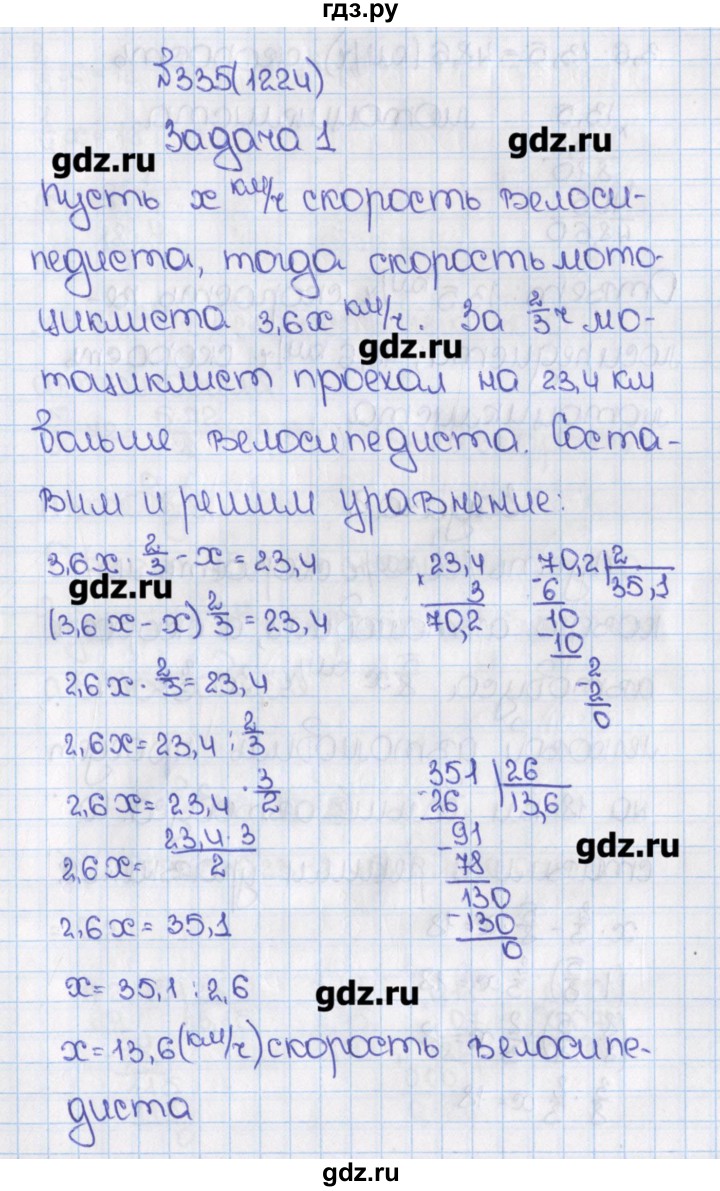 гдз.ру
№335(1224)
Задача 1
gdz.ru
gdz.ru
Пусть x км/ч скорость велоси-
педиста, тогда скорость мото-
циклиста 3,6x км/ч. За 2/3 ч мо-
gdz.ru
тоциклист проехал на 23,4 км
больше велосипедиста. Соста-
вим и решим уравнение:
3,6x · 2/3 - x = 23,4
gdz.ru
(3,6x - x) 2/3 = 23,4
2,6x · 2/3 = 23,4
2,6x = 23,4 : 2/3
2,6x = 23,4 · 3/2
2,6x = 23,4 · 3 / 2
2,6x = 35,1
x = 35,1 : 2,6
x = 13,6 (км/ч) скорость велосипе-
диста
× 23,4
3
70,2
70,2 | 2
- 6 | 35,1
10
- 10
2
- 2
0
351 | 26
- 26 | 13,6
91
- 78
130
- 130
0
gdz.ru
gdz.ru
gdz.ru